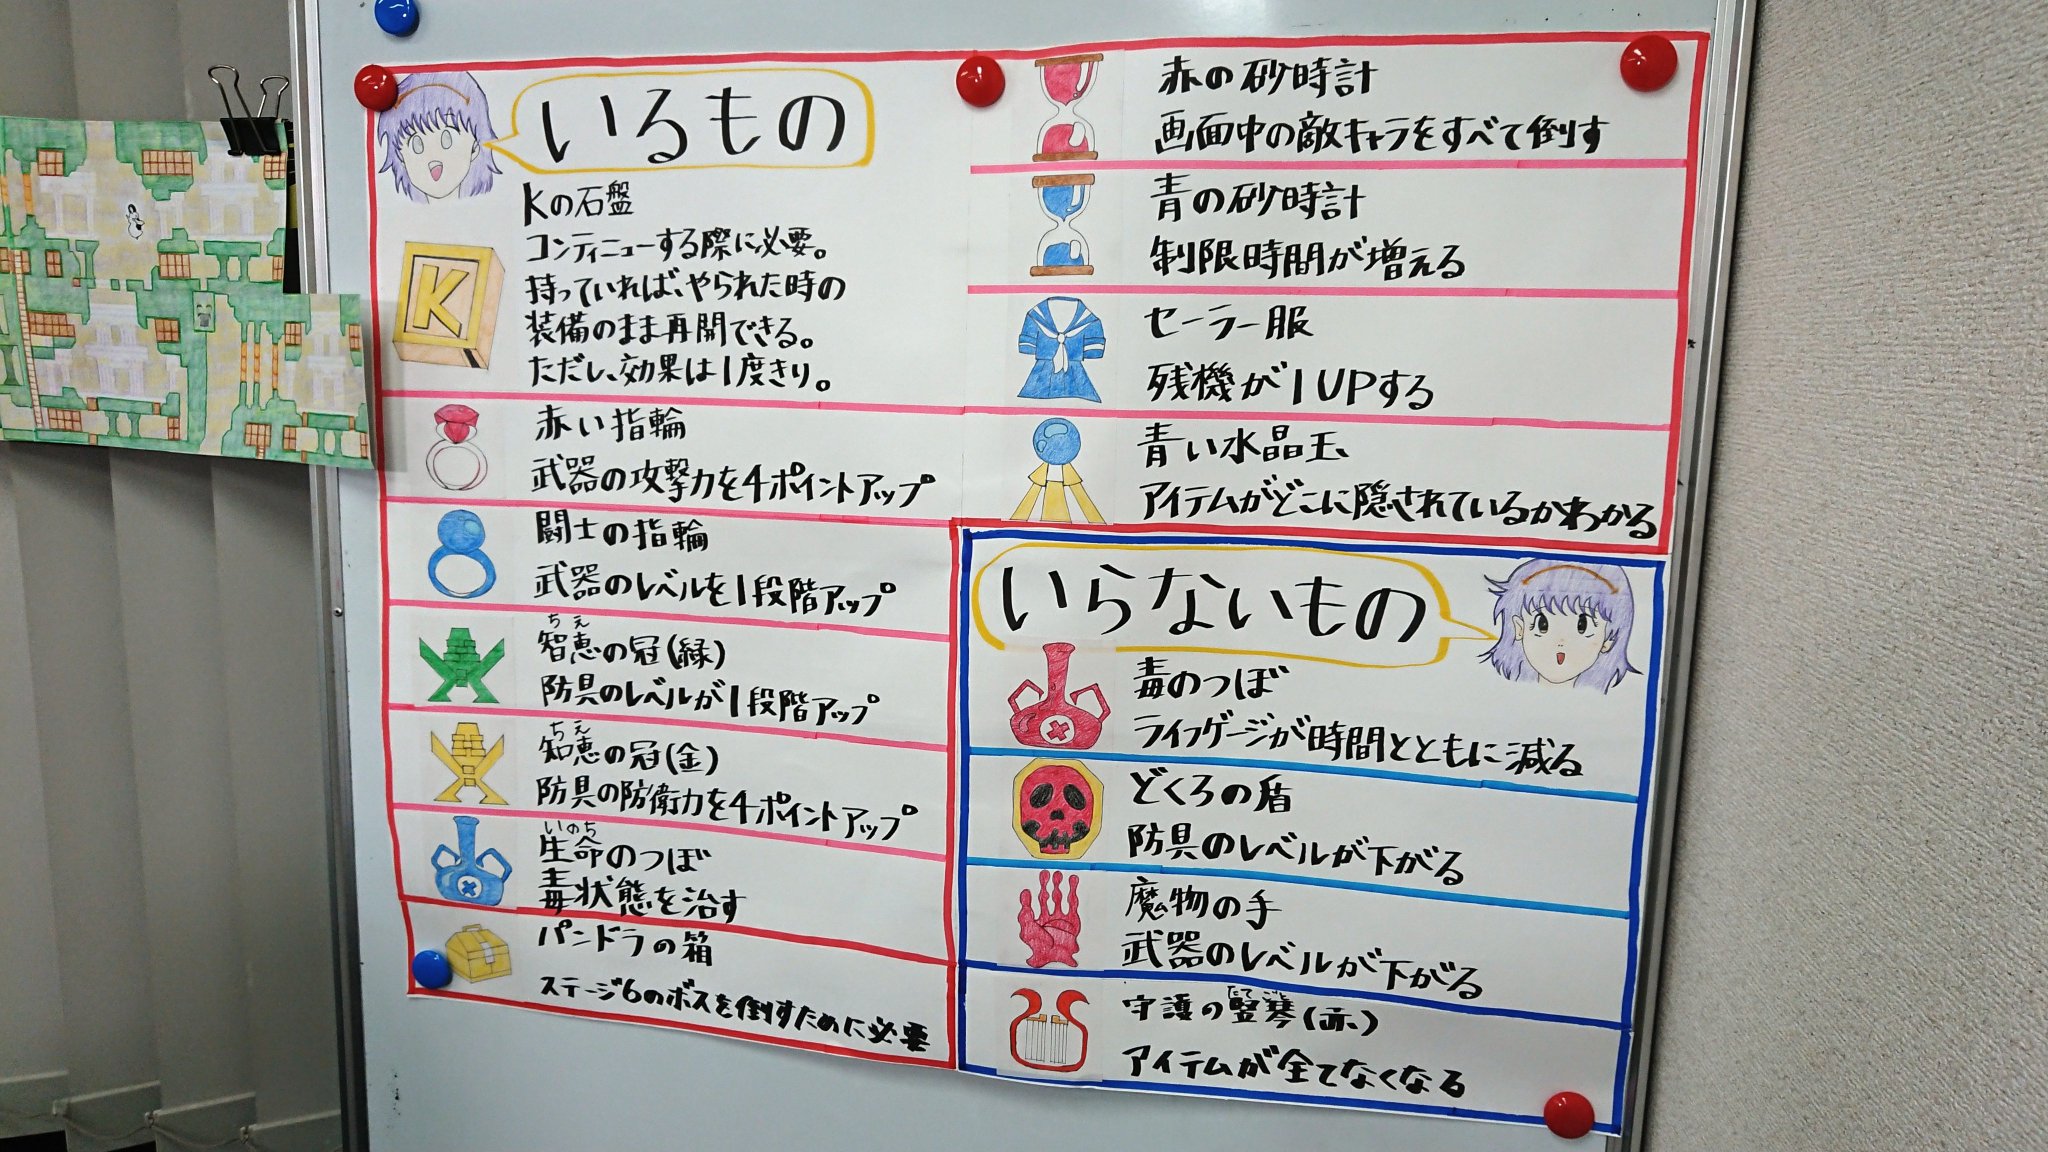 いるもの
K
Kの石盤
コンティニューする際に必要。
持っていれば、やられた時の
装備のまま再開できる。
ただし、効果は1度きり。
赤い指輪
武器の攻撃力を4ポイントアップ
闘士の指輪
武器のレベルを1段階アップ
ちえ
智恵の冠(緑)
防具のレベルが1段階アップ
ちえ
知恵の冠(金)
防具の防衛力を4ポイントアップ
いのち
生命のつぼ
毒状態を治す
パンドラの箱
ステージ6のボスを倒すために必要
赤の砂時計
画面中の敵キャラをすべて倒す
青の砂時計
制限時間が増える
セーラー服
残機が1UPする
青い水晶玉、
アイテムがどこに隠されているかわかる
いらないもの
毒のつぼ
ライフゲージが時間とともに減る
どくろの盾
防具のレベルが下がる
魔物の手
武器のレベルが下がる
たてごと
守護の竪琴(赤)
アイテムが全てなくなる